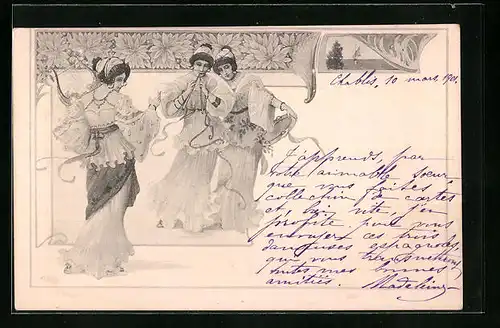 Chablis, 10 mars, 1901.
J'apprends, par
votre aimable sœur
que vous faites
collection de cartes
et, bien vite, j'en
profite pour vous
envoyer ces trois
danseuses espagnoles,
que vous
toutes mes bonnes
amitiés. Madeleine